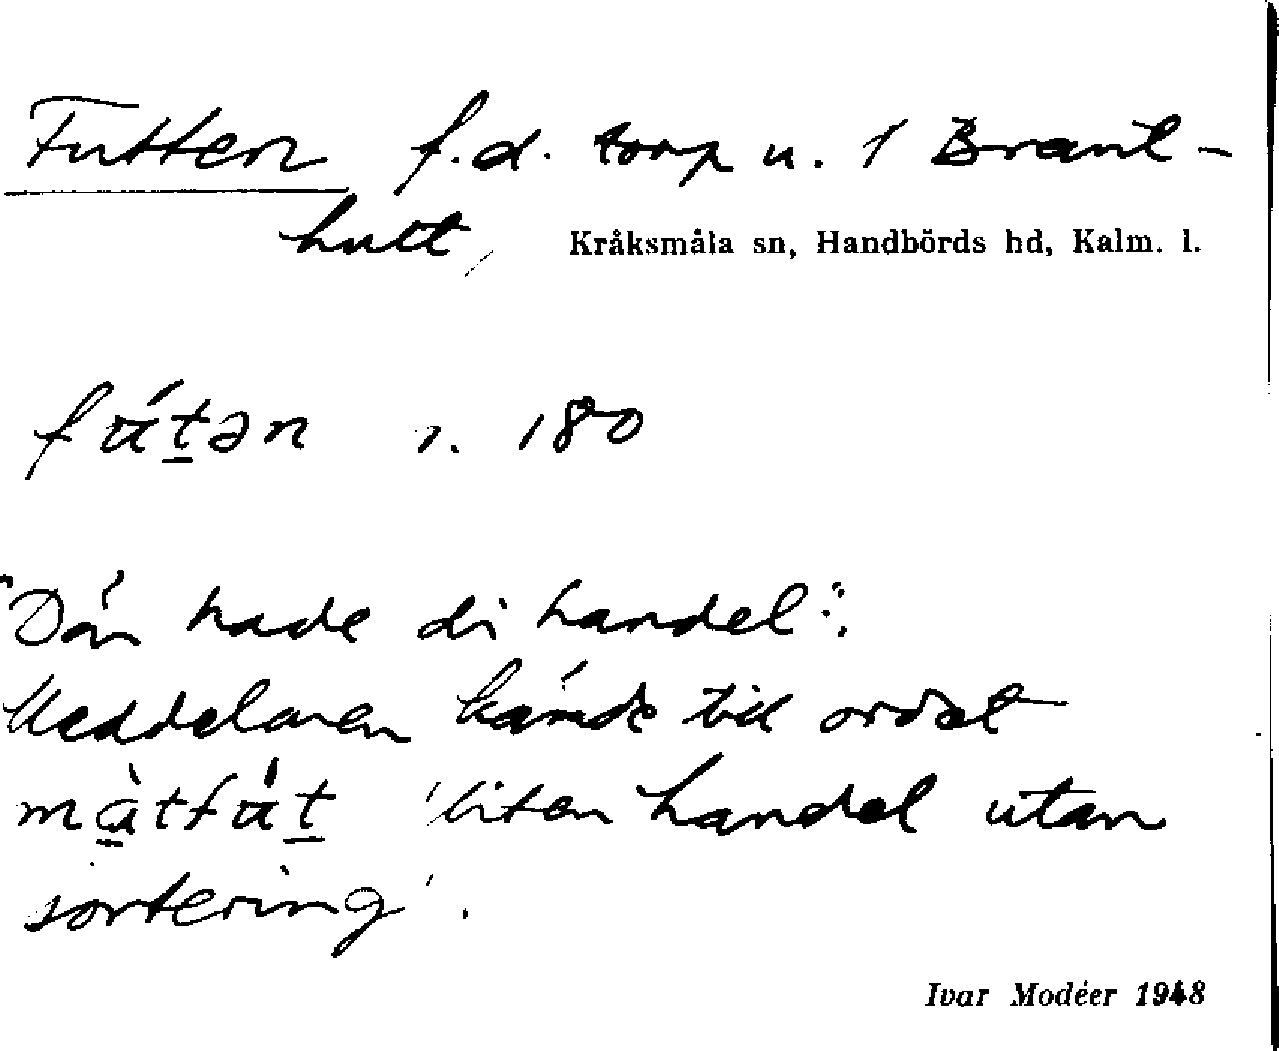 Futten f.d. torp u. 1 Brant-
hult, Kråksmåla sn, Handbörds hd, Kalm. l.
fút̲ən s. 180
"Dän hade di handel".
Meddelaren kände till ordet
màtfút̲ 'liten handel utan
sortering'.
Ivar Modéer 1948